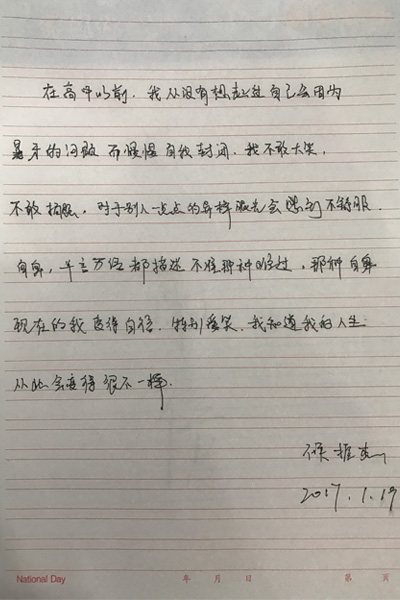 在高中以前,我从没有想过自己会因为
暴牙的问题而慢慢自我封闭.我不敢大笑,
不敢拍照,对于别人一点点的异样眼光会感到不舒服.
自卑,千言万语都描述不清那种经过,那种自卑
现在的我变得自信.特别爱笑.我知道我的人生
从此会变得很不一样.
2017.1.19
National Day 年 月 日 第 页